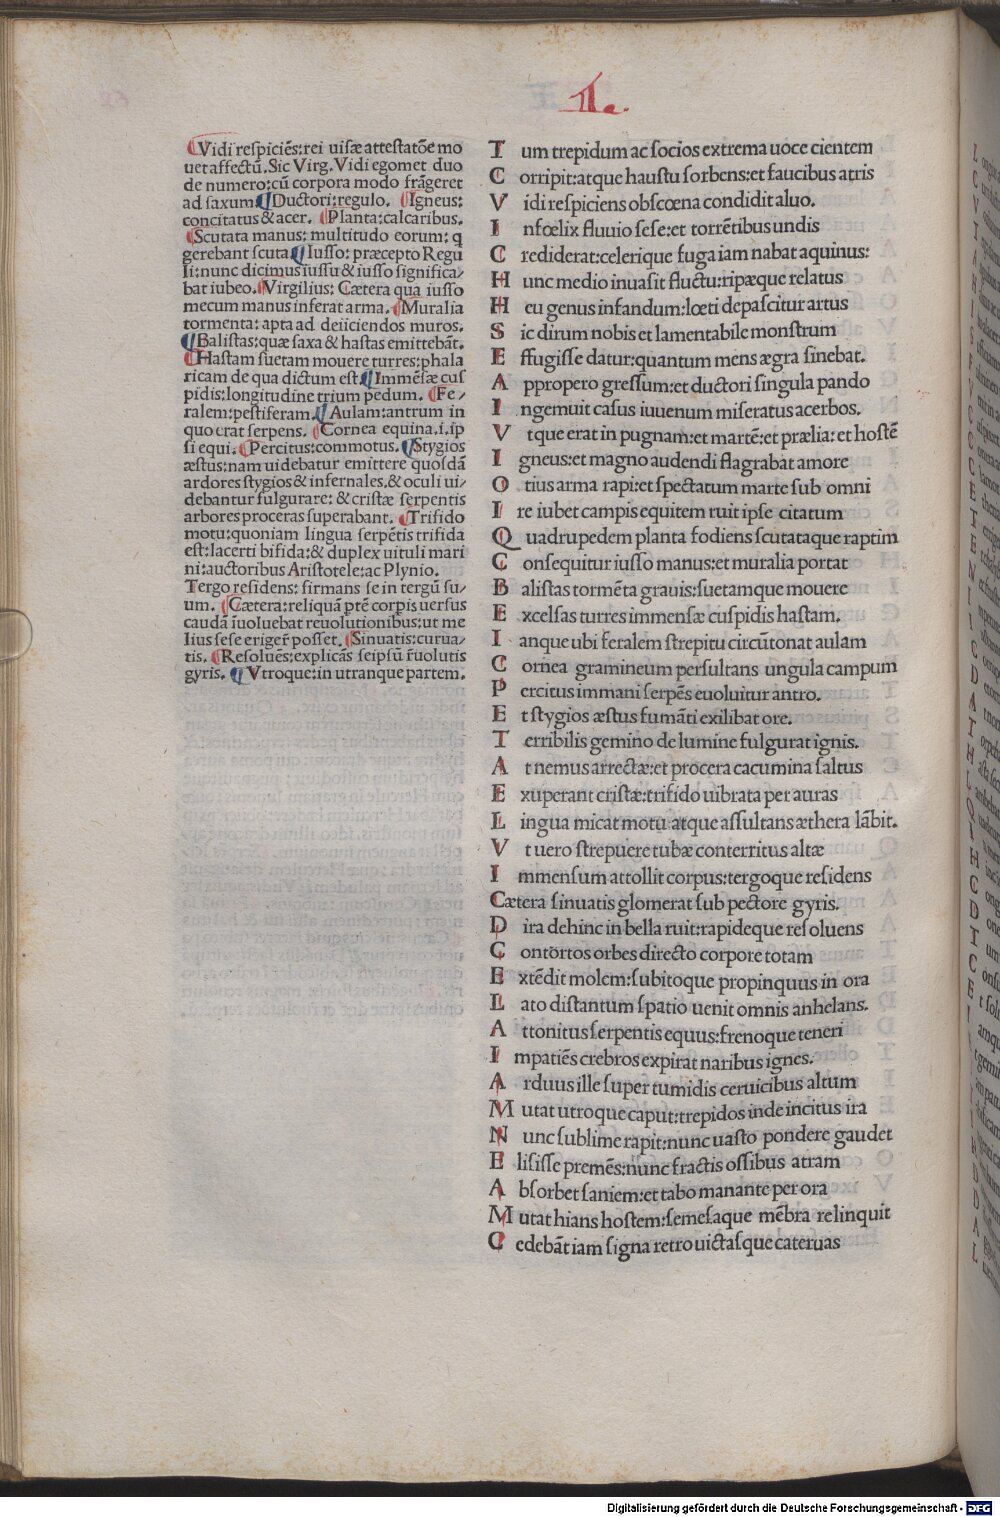 L.
Vidi respiciēs: rei uisæ attestatōe mo
uet affectū. Sic Virg. Vidi egomet duo
de numero: cū corpora modo frāgeret
ad saxum. Ductori: regulo. Igneus:
concitatus & acer. Planta: calcaribus.
Scutata manus: multitudo eorum: q
gerebant scuta. Iusso: præcepto Regu
li: nunc dicimus iussu & iusso significa/
bat iubeo. Virgilius: Cætera qua iusso
mecum manus inferat arma. Muralia
tormenta: apta ad deiiciendos muros.
Balistas: quæ saxa & hastas emittebāt.
Hastam suetam mouere turres: phala
ricam de qua dictum est. Immēsæ cus
pidis: longitudine trium pedum. Fe/
ralem: pestiferam. Aulam: antrum in
quo erat serpens. Cornea equina .i. ip
si equi. Percitus: commotus. Stygios
æstus: nam uidebatur emittere quosdā
ardores stygios & infernales. & oculi ui/
debantur fulgurare: & cristæ serpentis
arbores proceras superabant. Trifido
motu: quoniam lingua serpētis trifida
est: lacerti bifida: & duplex uituli mari
ni: auctoribus Aristotele: ac Plynio.
Tergo residens: firmans se in tergū su/
um. Cætera: reliquā ptē corpis uersus
caudā īuoluebat reuolutionibus: ut me
lius sese erigeř posset. Sinuatis: curua/
tis. Resoluēs: explicās seipsū řuolutis
gyris. Vtroque: in utranque partem.
T um trepidum ac socios extrema uoce cientem
C orripit: atque haustu sorbens: et faucibus atris
V idi respiciens obscœna condidit aluo.
I nfœlix fluuio sese: et torrētibus undis
C rediderat: celerique fuga iam nabat aquinus:
H unc medio inuasit fluctu: ripæque relatus
H eu genus infandum: lœti depascitur artus
S ic dirum nobis et lamentabile monstrum
E ffugisse datur: quantum mens ægra sinebat.
A ppropero gressum: et ductori singula pando
I ngemuit casus iuuenum miseratus acerbos.
V tque erat in pugnam: et martē: et prælia: et hostē
I gneus: et magno audendi flagrabat amore
O tius arma rapi: et spectatum marte sub omni
I re iubet campis equitem ruit ipse citatum
Q uadrupedem planta fodiens scutataque raptim
C onsequitur iusso manus: et muralia portat
B alistas tormēta grauis: suetamque mouere
E xcelsas turres immensæ cuspidis hastam.
I anque ubi feralem strepitu circūtonat aulam
C ornea gramineum persultans ungula campum
P ercitus immani serpēs euoluitur antro.
E t stygios æstus fumāti exilibat ore.
T erribilis gemino de lumine fulgurat ignis.
A t nemus arrectæ: et procera cacumina saltus
E xuperant cristæ: trifido uibrata per auras
L ingua micat motu atque assultans æthera lābit.
V t uero strepuere tubæ conterritus altæ
I mmensum attollit corpus: tergoque residens
Cætera sinuatis glomerat sub pectore gyris.
D ira dehinc in bella ruit: rapideque resoluens
C ontortos orbes directo corpore totam
E xtēdit molem: subitoque propinquus in ora
L ato distantum spatio uenit omnis anhelans.
A ttonitus serpentis equus: frenoque teneri
I mpatiēs crebros expirat naribus ignes.
A rduus ille super tumidis ceruicibus altum
M utat utroque caput: trepidos inde incitus ira
N unc sublime rapit: nunc uasto pondere gaudet
E lisisse premēs: nunc fractis ossibus atram
A bsorbet saniem: et tabo manante per ora
M utat hians hostem: semesaque mēbra relinquit
C edebāt iam signa retro uictasque cateruas
Digitalisierung gefördert durch die Deutsche Forschungsgemeinschaft - DFG